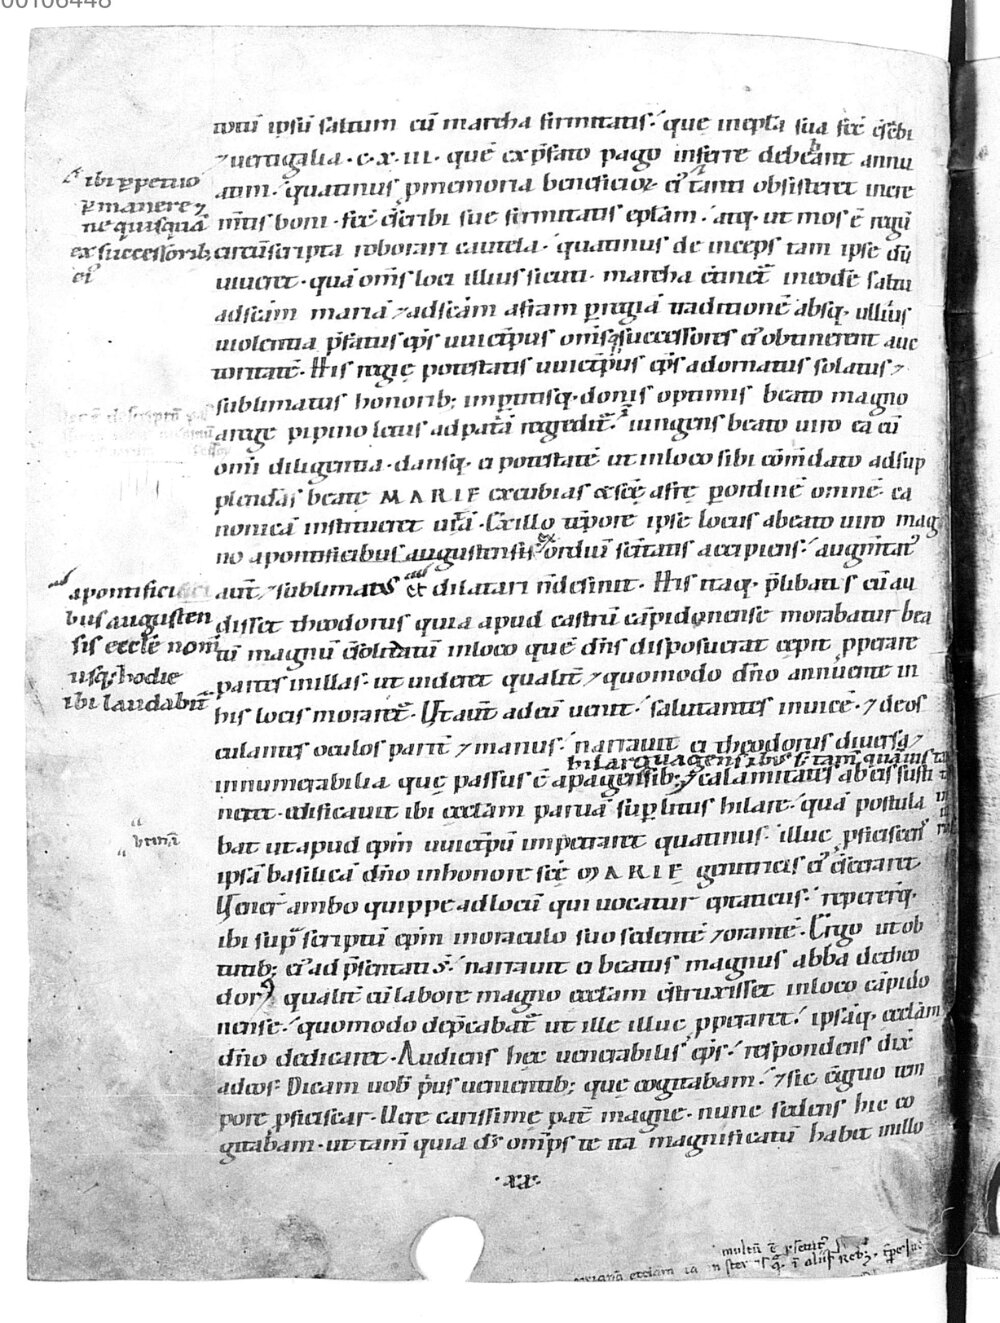 00106448
totū ipsū saltum cū marcha firmitatis. quę inepta sua sic c̄scbi
⁊ uertigalia · c · x · iii · quę ex p̄fato pago inferre debeant annu
atim. quatinus ꝓ memoria beneficior̄ ei tanti obsisteret incre
m̄tis boni · sic c̄scribi suę firmitatis eptām. atq; ut mos ē regū
circūscripta roborari cautela. quatinus de inceps tam ipse dū
uiueret · quā om̄s loci illius sicuti · marcha cūncta in eodē saltu
ad sc̄am mariā ⁊ ad sc̄am afram p regiā traditionē absq; ullius
uiolentia p̄fatus ep̄s uuictp̄us om̄sq; successores ei obtinerent auc
toritatē. His regię potestatis uuictp̄us ep̄s adornatus solatus ⁊
sublimatus honorib; imp̄titisq; donis optimis beato magno
a rege pipino letus ad patriā regredit̄. iungens beato uiro ea cū
omni diligentia · dansq; ei potestatē ut in loco sibi cōm̄dato ad sup
plendas beatę MARIE excubias & sc̄ę afrę p ordinē omnē ca
nonicā institueret uitā. Ex illo tēpore ipse locus a beato uiro mag
no a pontificibus augustensis ex ordinū sc̄itatis accipiens. augm̄tat̄
aut̄ ⁊ sublimatus et dilatari n̄ desinit. His itaq; p̄libatis cū au
disset theodorus quia apud castrū cāpidonense morabatur bea
tū magnū c̄solidatū in loco quē dn̄s disposuerat cepit ꝓperare
partes in illas · ut uideret qualit̄ ⁊ quomodo dn̄o annuente in
his locis moraret̄. Ut aut̄ ad eū uenit. salutantes inuicē · ⁊ deos
culantes oculos parit̄ ⁊ manus. narrauit ei theodorus diuersa ⁊
hilar
innumerabilia quę passus ē a pagensib; ⁊ calamitates ab eis susti
nent · edificauit ibi eccłam paruā sup litus hilarę. quā postula
bat ut apud ep̄m uuictp̄ū impetraret quatinus illuc ꝓficiscens
ipsā basilicā dn̄o in honore sc̄ę MARIE genitricis ei c̄secraret
Uenert̄ ambo quippe ad locū qui uocatur eptaticus. repererq;
ibi sup̄ scriptū ep̄m in oraculo suo sedentē ⁊ orantē. Ergo ut ob
tutib; ei ad p̄sentatis. narrauit ei beatus magnus abba de theo
doro qualit̄ cū labore magno eccłam c̄struxisset in loco cāpido
nense. quomodo dep̄cabat̄ ut ille illuc ꝓperaret. ipsāq; eccłam
dn̄o dedicaret. Audiens hęc uenerabilis ep̄s. respondens dix̄
ad eos: Dicam uob̄ p̄us uenientib; quę cogitabam. ⁊ sic c̄gruo tem
pore ꝓficiscar. Uere carissime pat̄ magne · nunc sedens hic co
gitabam · ut tam̄ quia ds̄ om̄ps te ita magnificatū habet in illo
· xx ·
ibi ꝑpetuo
ꝑmanere ⁊
ne quisquā
ex successorib;
ei
a pontifici
bus augusten
sis eccłe nom̄
usq; hodie
ibi laudabit̄